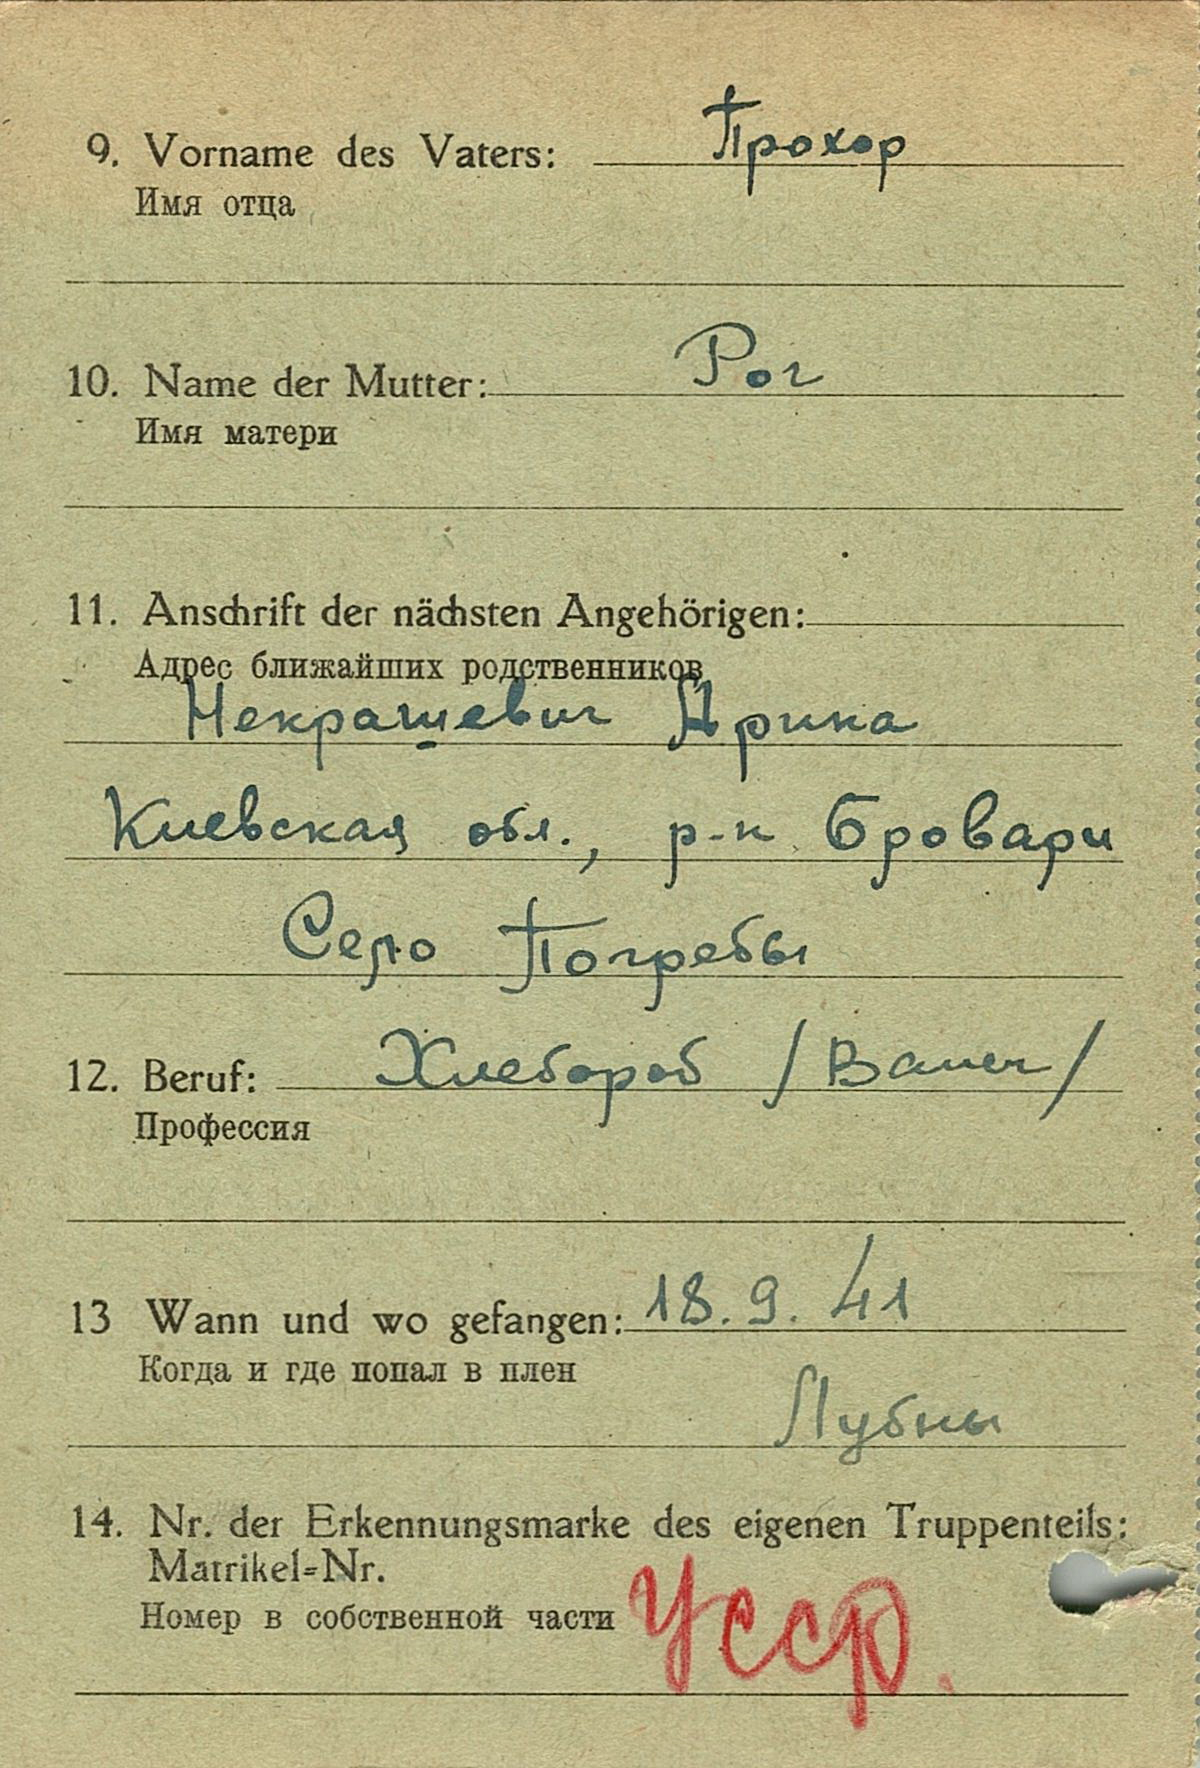 9. Vorname des Vaters: Прохор
Имя отца
10. Name der Mutter: Рог
Имя матери
11. Anschrift der nächsten Angehörigen:
Адрес ближайших родственников
Некрашевич Арина
Киевская обл., р-н Бровари
Село Погребы
12. Beruf: Хлебороб /Bauer/
Профессия
13 Wann und wo gefangen: 18.9.41
Когда и где попал в плен
Лубны
14. Nr. der Erkennungsmarke des eigenen Truppenteils:
Matrikel-Nr.
Номер в собственной части УССР.